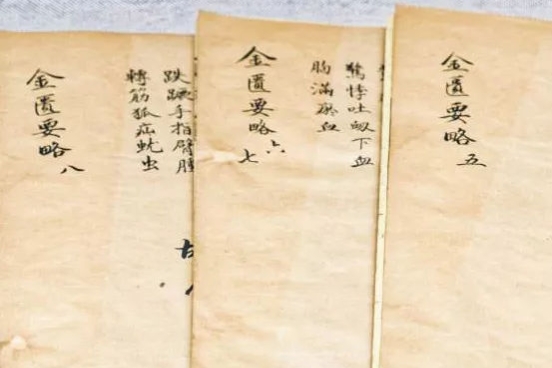 金匱要略五
驚悸吐衂下血
胸滿瘀血
金匱要略六
七
趺蹶手指臂腫
轉筋狐疝蚘虫
金匱要略八